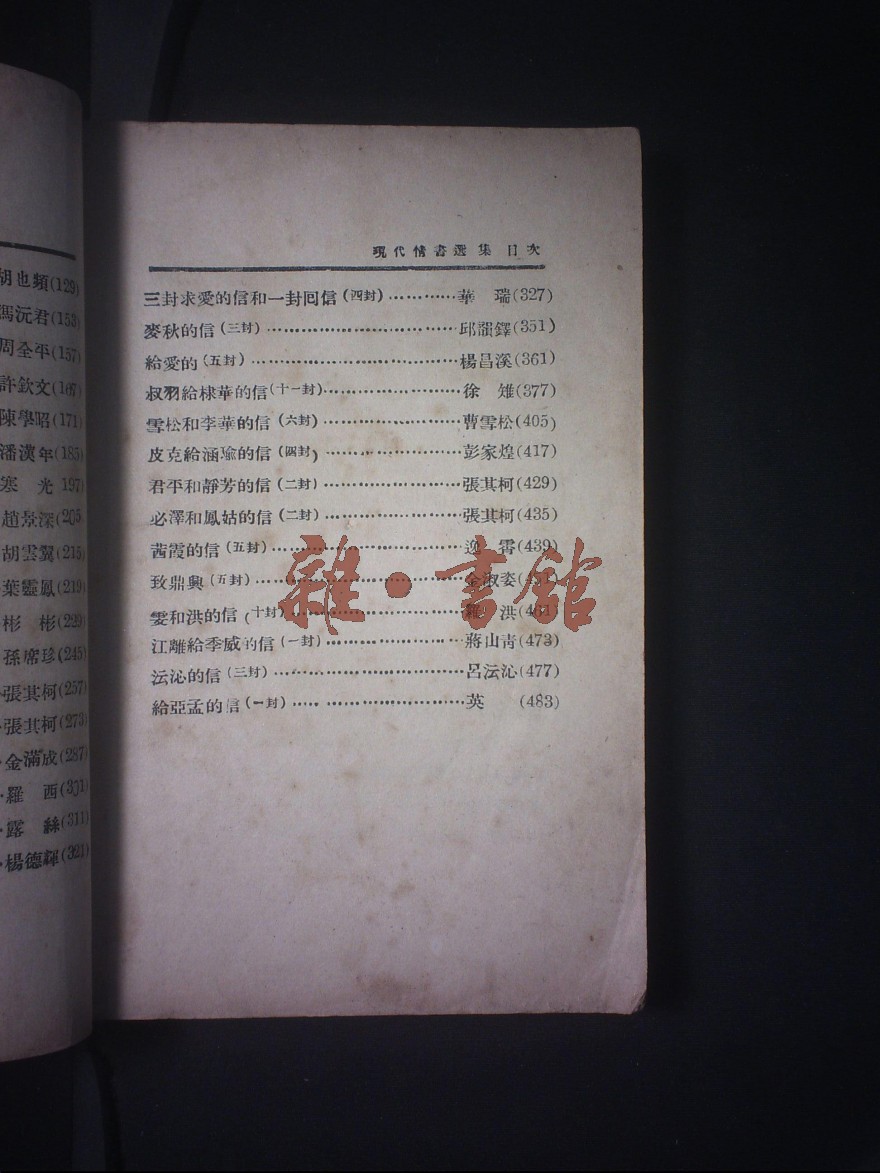 胡也頻(129)
馮沅君(153)
周全平(157)
許欽文(167)
陳學昭(171)
潘漢年(185)
寒 光 197)
趙景深(205
胡雲翼(215)
葉靈鳳(219)
彬 彬(229)
孫席珍(245)
張其柯(257)
張其柯(273)
金滿成(287)
羅 西(301)
露 絲(311)
楊德輝(321)
現代情書選集 目次
三封求愛的信和一封回信(四封)…………華 瑞(327)
麥秋的信(三封)…………………………邱韻鐸(351)
給愛的(五封)……………………………楊昌溪(361)
叔羽給棣華的信(十一封)………………徐 雉(377)
雪松和李華的信(六封)…………………曹雪松(405)
皮克給涵瑜的信(四封)…………………彭家煌(417)
君平和靜芳的信(二封)…………………張其柯(429)
必澤和鳳姑的信(二封)…………………張其柯(435)
茜霞的信(五封)…………………………逸 霄(439)
致鼎興(五封)……………………………金淑姿(451)
雯和洪的信(十封)………………………羅 洪(461)
江離給季威的信(一封)…………………蔣山青(473)
沄沁的信(三封)…………………………呂沄沁(477)
給亞孟的信(一封)………………………英 (483)
雜·書館